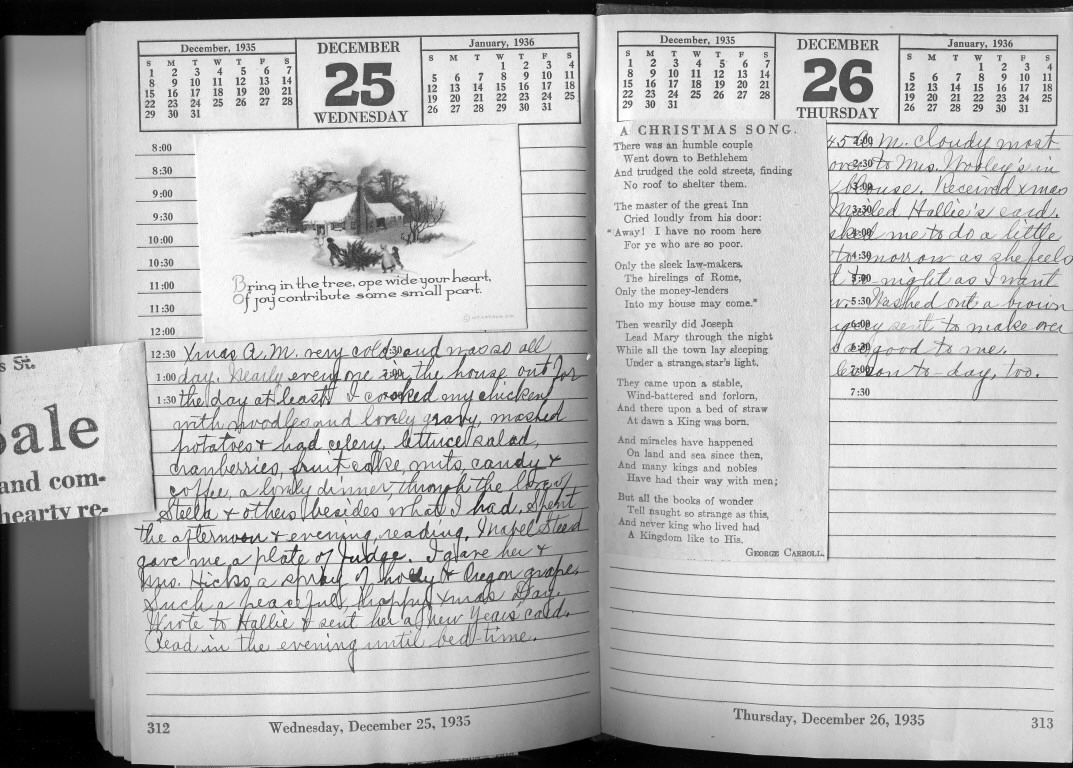 December, 1935
S M T W T F S
1 2 3 4 5 6 7
8 9 10 11 12 13 14
15 16 17 18 19 20 21
22 23 24 25 26 27 28
29 30 31
DECEMBER
25
WEDNESDAY
January, 1936
S M T W T F S
1 2 3 4
5 6 7 8 9 10 11
12 13 14 15 16 17 18
19 20 21 22 23 24 25
26 27 28 29 30 31
8:00
8:30
9:00
9:30
10:00
10:30
11:00
11:30
12:00
Bring in the tree, ope wide your heart,
Of joy contribute some small part.
s St.
Sale
and com-
hearty re-
12:30 Xmas A.M. very cold and was so all
1:00 day. Nearly everyone in the house out for
1:30 the day at least. I cooked my chicken
with noodles and lovely gravy, mashed
potatoes & had celery, lettuce salad,
cranberries, fruit cake, nuts, candy &
coffee, a lovely dinner, through the love of
Stella & others besides what I had. Spent
the afternoon & evening reading. Mabel Steed
gave me a plate of fudge. I gave her &
Mrs. Hicks a spray of holly & Oregon grape.
Such a peaceful, happy Xmas Day.
Wrote to Hallie & sent her a New Years card.
Read in the evening until bed-time.
312
Wednesday, December 25, 1935
December, 1935
S M T W T F S
1 2 3 4 5 6 7
8 9 10 11 12 13 14
15 16 17 18 19 20 21
22 23 24 25 26 27 28
29 30 31
DECEMBER
26
THURSDAY
January, 1936
S M T W T F S
1 2 3 4
5 6 7 8 9 10 11
12 13 14 15 16 17 18
19 20 21 22 23 24 25
26 27 28 29 30 31
A CHRISTMAS SONG.
There was an humble couple
Went down to Bethlehem
And trudged the cold streets, finding
No roof to shelter them.
The master of the great Inn
Cried loudly from his door:
"Away! I have no room here
For ye who are so poor.
Only the sleek law-makers,
The hirelings of Rome,
Only the money-lenders
Into my house may come."
Then wearily did Joseph
Lead Mary through the night
While all the town lay sleeping
Under a strange star's light.
They came upon a stable,
Wind-battered and forlorn,
And there upon a bed of straw
At dawn a King was born.
And miracles have happened
On land and sea since then,
And many kings and nobles
Have had their way with men;
But all the books of wonder
Tell naught so strange as this,
And never king who lived had
A Kingdom like to His.
GEORGE CARROLL.
45 A.M. cloudy most
over to Mrs. in
house. Received Xmas
Mailed Hallie's card.
me to do a little
to-morrow as she feels
to-night as I want
Washed out a brown
sent to make over
so good to me.
on to-day, too.
7:30
Thursday, December 26, 1935
313